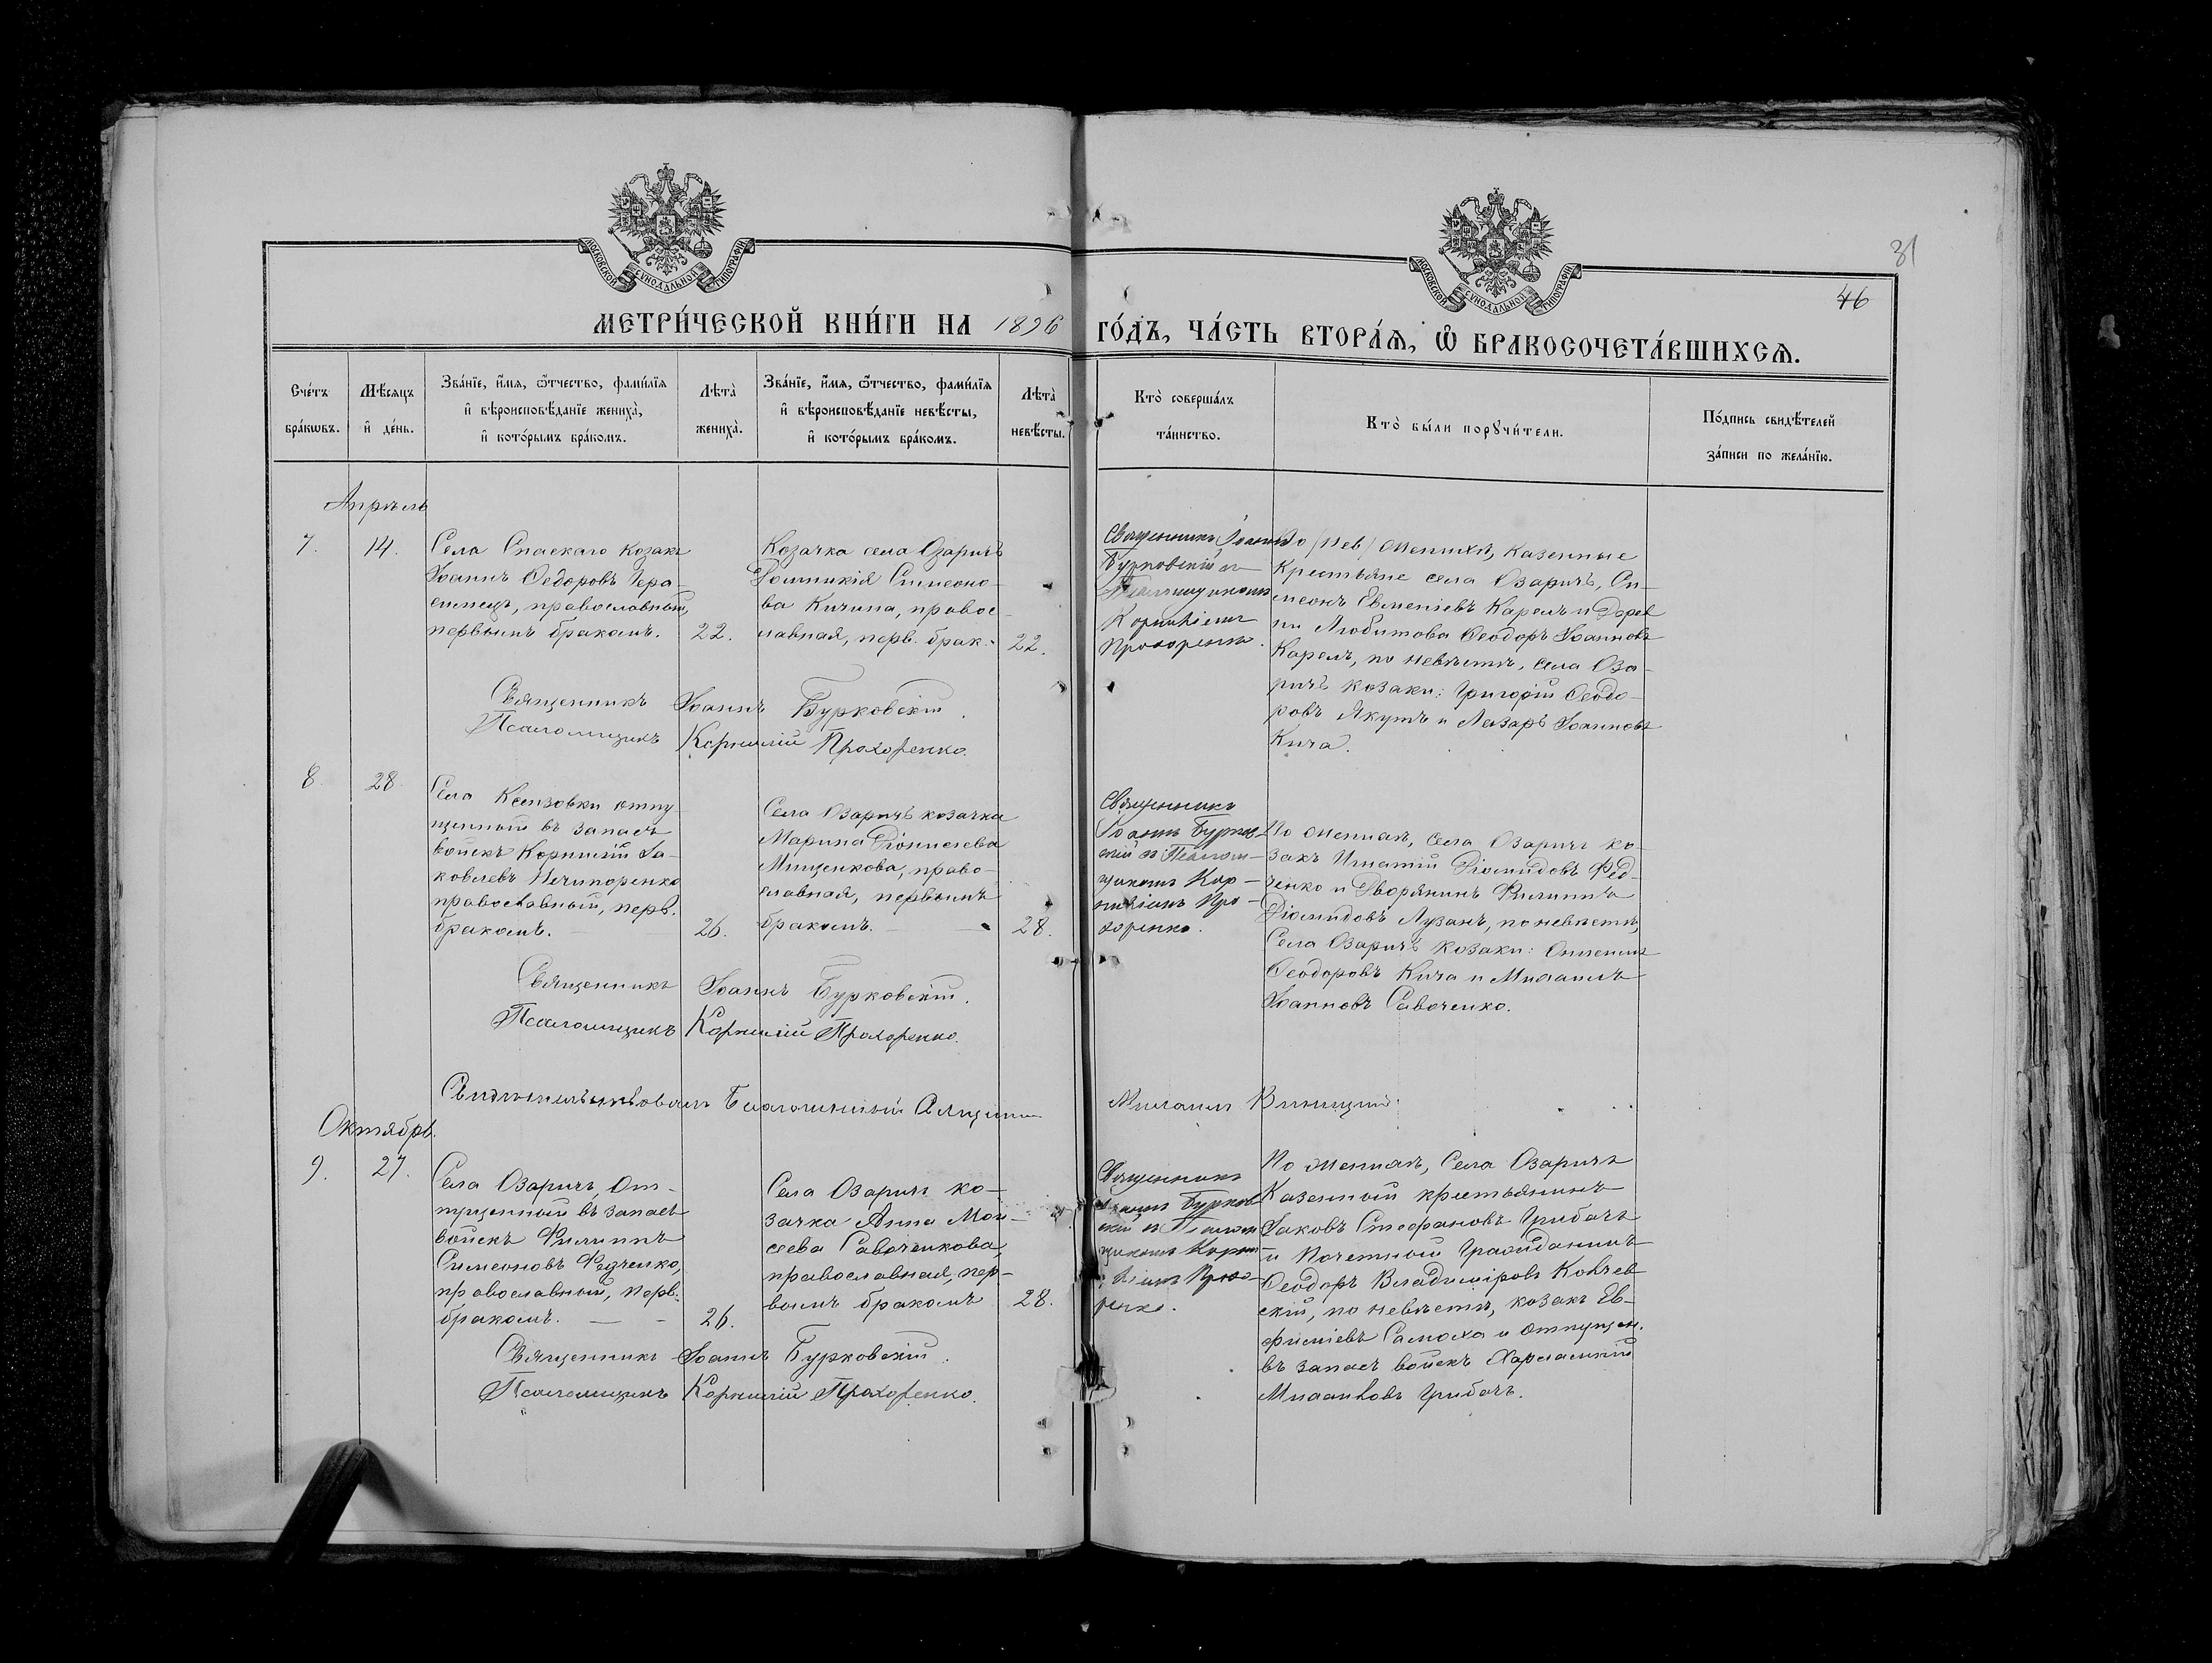 МОСКОВСКОЙ СѴНОДАЛЬНОЙ ТИПОГРАФІИ
МОСКОВСКОЙ СѴНОДАЛЬНОЙ ТИПОГРАФІИ
31
46
МЕТРИ́ЧЕСКОЙ КНИ́ГИ НА 1896 ГО́ДЪ, ЧА́СТЬ ВТОРА́Ѧ, Ѡ БРАКОСОЧЕТА́ВШИХСѦ.
Сче́тъ
бра́кѡвъ.
Мѣ́сяцъ
и҆ де́нь.
Зва́нїе, и҆́мѧ, ѻ҆́тчество, фами́лїѧ
и҆ вѣроисповѣ́данїе жениха̀,
и҆ кото́рымъ бра́комъ.
Лѣта̀
жениха̀.
Зва́нїе, и҆́мѧ, ѻ҆́тчество, фами́лїѧ
и҆ вѣроисповѣ́данїе невѣ́сты,
и҆ кото́рымъ бра́комъ.
Лѣта̀
невѣ́сты.
Кто̀ соверша́лъ
та́инство.
Кто̀ бы́ли порꙋчи́тели.
По́дпись свидѣ́телей
за́писи по жела́нїю.
Апрѣль
7.
14.
Села Спаскаго козакъ
Іоаннъ Ѳедоровъ Гера-
симецъ, православный,
первымъ бракомъ.
22.
Козачка села Озаричъ
Домникія Симеоно-
ва Кичина, правос-
лавная, перв. брак.
22.
Священникъ Іоаннъ
Бурковскій съ
Псаломщикомъ
Корниліемъ
Прохоренко.
По (нев) женихѣ, казенные
крестьяне села Озаричъ, Си-
меонъ Евменіевъ Карелъ и дерев
ни Любитова Ѳеодоръ Іоанновъ
Карелъ, по невѣстѣ, села Оза-
ричъ козаки: Григорій Ѳеодо-
ровъ Якутъ и Лазарь Іоанновъ
Кича.
Священникъ Іоаннъ Бурковскій.
Псаломщикъ Корнилій Прохоренко.
8.
28.
Села Ксензовки отпу
щенный въ запасъ
войскъ Корнилій Іа-
ковлевъ Нечипоренко
православный, перв.
бракомъ.
26.
Села Озаричъ козачка
Марина Діонисіева
Мищенкова, право-
славная, первымъ
бракомъ.
28.
Священникъ
Іоаннъ Бурков-
скій съ Псалом-
щикомъ Кор-
ниліемъ Про-
хоренко.
По женихѣ, села Озаричъ ко-
закъ Игнатій Діомидовъ Фед-
ченко и Дворянинъ Филиппъ
Діомидовъ Лузанъ, по невѣстѣ,
Села Озаричъ козаки:
Ѳеодоровъ Кича и Михаилъ
Іоанновъ Савоченко.
Священникъ Іоаннъ Бурковскій.
Псаломщикъ Корнилій Прохоренко.
Свидѣтельствовалъ Благочинный Священникъ Михаилъ
Октябрь.
9.
27.
Села Озаричъ, От-
пущенный въ запасъ
войскъ Филиппъ
Симеоновъ Федченко,
православный, перв.
бракомъ.
26.
Села Озаричъ ко-
зачка Анна Мои-
сеева Савоченкова,
православная, пер-
вымъ бракомъ
28.
Священникъ
Іоаннъ Бурков-
скій съ Псалом
щикомъ Корни-
ліемъ Прохо-
ренко.
По женихѣ, Села Озаричъ
Казенный крестьянинъ
Іаковъ Стефановъ Грибачъ
и Почетный Гражданинъ
Ѳеодоръ Владиміровъ
скій, по невѣстѣ, козакъ Ев-
фиміевъ Самоха и отпущен.
въ запасъ войскъ Харлампій
Грибачъ.
Священникъ Іоаннъ Бурковскій.
Псаломщикъ Корнилій Прохоренко.